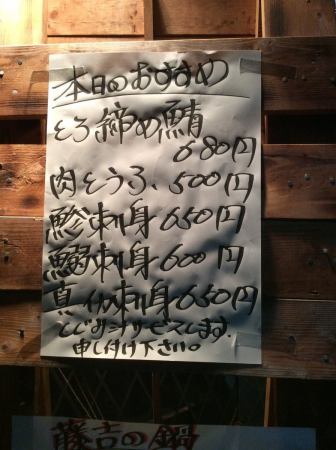 本日のおすすめ
とろ締め鯖
680円
肉とうふ、500円
鯵刺身 650円
鰯刺身 600円
真イカ刺身 650円
しじみ汁サービスします。
申し付け下さい。
藤吉の鍋